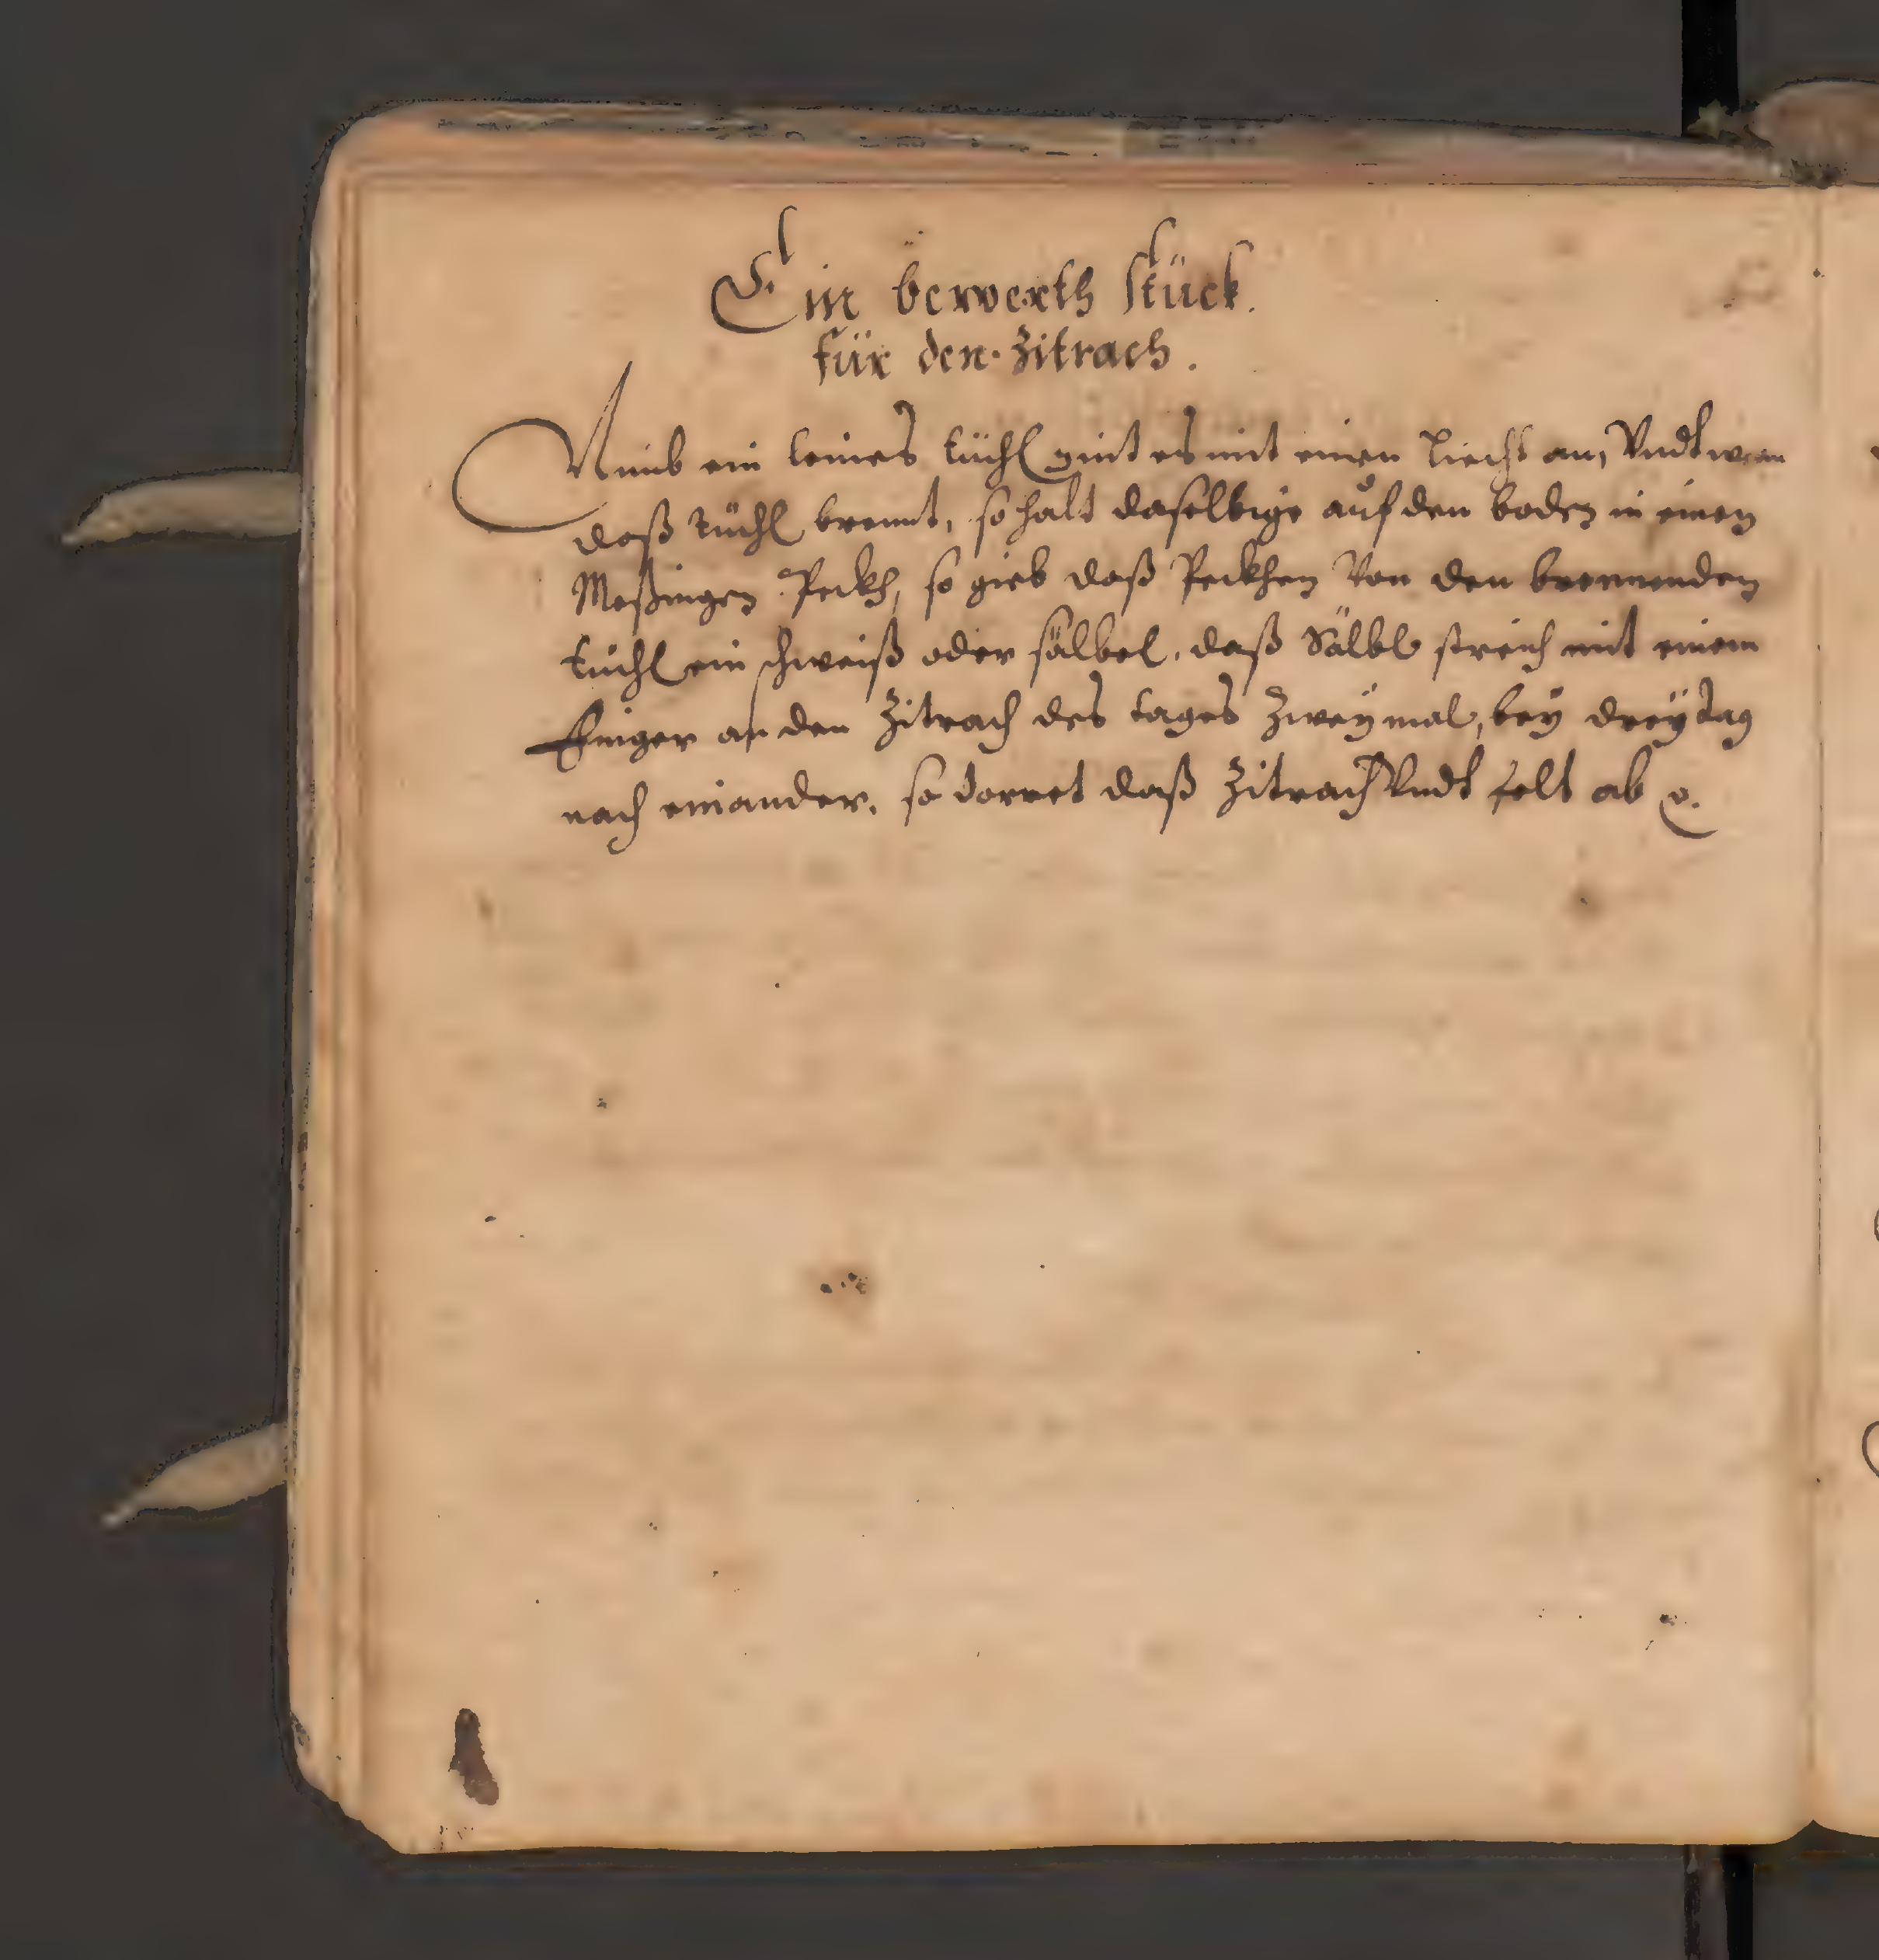 Ein berwerth stück.
für den Zitrach.
Nimb ein leines tüchl zint es mit einen Liecht an, Vndt wean
daß tüchl brennt, so halt daselbige auf den boden in einen
Meßingen Peckh, so gieb daß Peckhen Von den brennenden
tüchl ein schweiß oder sälbel. daß Sälbl streich mit einem
Finger an den Zitrach des tages Zweÿ mal, beÿ dreÿ tag
nach einander. so dorret daß Zitrach Vndt felt ab